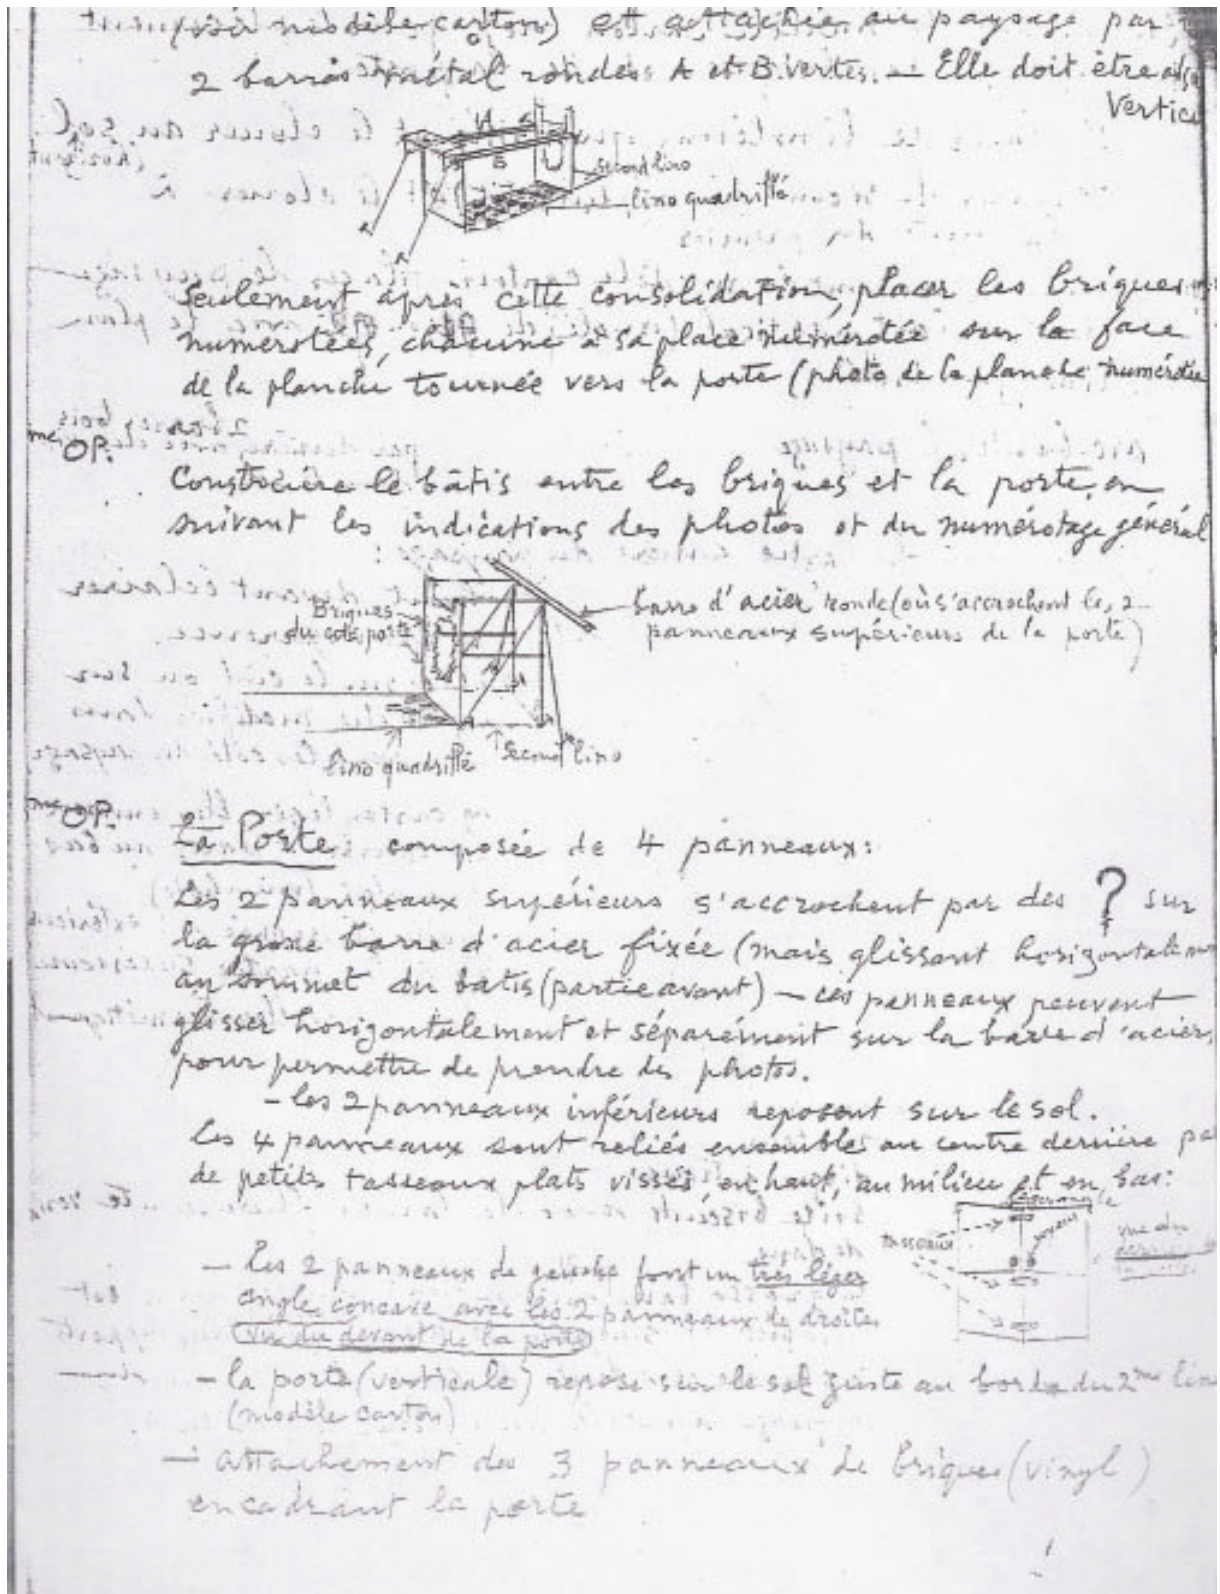 (voir modèle carton) est attachée au paysage par
2 barres métal rondes A et B vertes. — Elle doit être
Vertica
second lino
lino quadrillé
Seulement après cette consolidation, placer les briques
numérotées, chacune à sa place numérotée sur la face
de la planche tournée vers la porte (photo de la planche numérotée
me OP.
Construire le bâtis entre les briques et la porte, en
suivant les indications des photos et du numérotage général
Briques
du coté porte
barre d'acier ronde (où s'accrochent les 2
panneaux supérieurs de la porte)
lino quadrillé
Second lino
me OP.
La Porte composée de 4 panneaux:
Les 2 panneaux supérieurs s'accrochent par des ? sur
la grosse barre d'acier fixée (mais glissant horizontalem
au sommet du batis (partie avant) — ces panneaux peuvent
glisser horizontalement et séparément sur la barre d'acier,
pour permettre de prendre des photos.
- les 2 panneaux inférieurs reposent sur le sol.
Les 4 panneaux sont reliés ensemble au centre derrière pa
de petits tasseaux plats vissés, en haut, au milieu et en bas:
léger angle
tasseaux
vue du
derrière
— Les 2 panneaux de gauche font un très léger
angle concave avec les 2 panneaux de droite
(vue du devant de la porte)
— la porte (verticale) repose sur le sol juste au bord du 2me lino
(modèle carton)
— attachement des 3 panneaux de briques (vinyl)
encadrant la porte